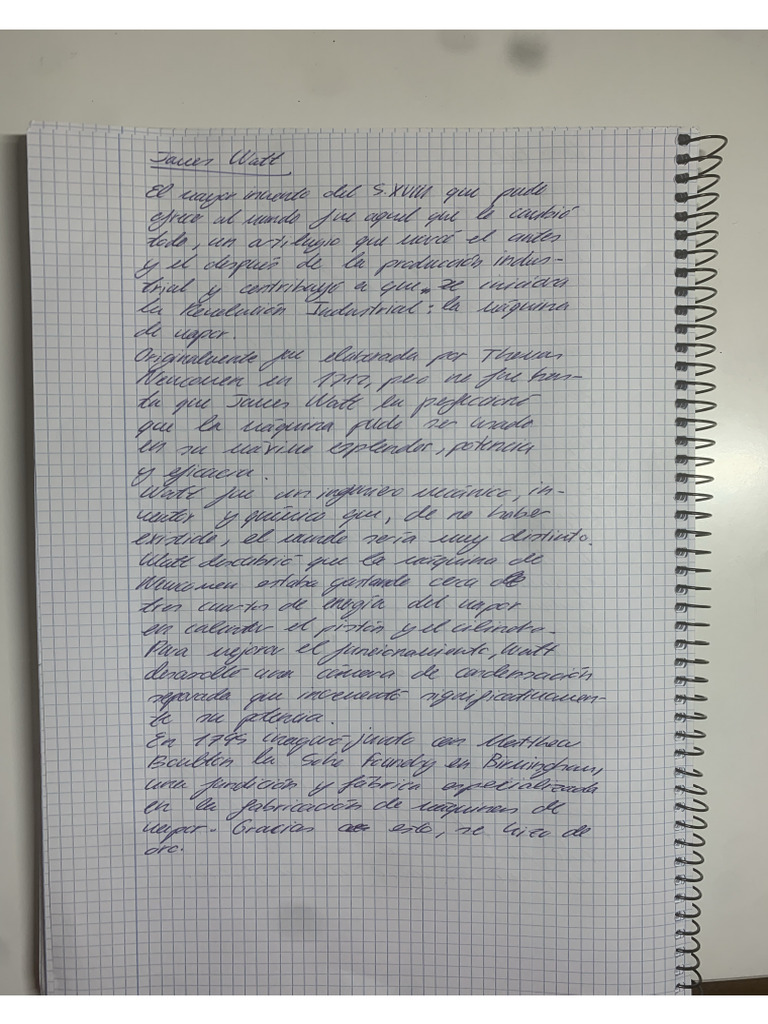 James Watt
El mayor invento del S.XVIII que pudo
ofrecer al mundo fue aquel que lo cambió
todo, un artilugio que marcó el antes
y el después de la producción indus-
trial y contribuyó a que se iniciara
la Revolución Industrial: la máquina
de vapor.
Originalmente fue elaborada por Thomas
Newcomen en 1712, pero no fue has-
ta que James Watt la perfeccionó
que la máquina pudo ser usada
en su máximo esplendor, potencia
y eficacia.
Watt fue un ingeniero mecánico, in-
ventor y químico que, de no haber
existido, el mundo sería muy distinto.
Watt descubrió que la máquina de
Newcomen estaba gastando cerca de
tres cuartos de energía del vapor
en calentar el pistón y el cilindro.
Para mejorar el funcionamiento, Watt
desarolló una cámara de condensación
separada que incrementó significativamen-
te su potencia.
En 1795 inaguró junto con Matthew
Boulton la Soho Foundry en Birmingham,
una fundición y fábrica especializada
en la fabricación de máquinas de
vapor. Gracias a esto, se hizo de
oro.